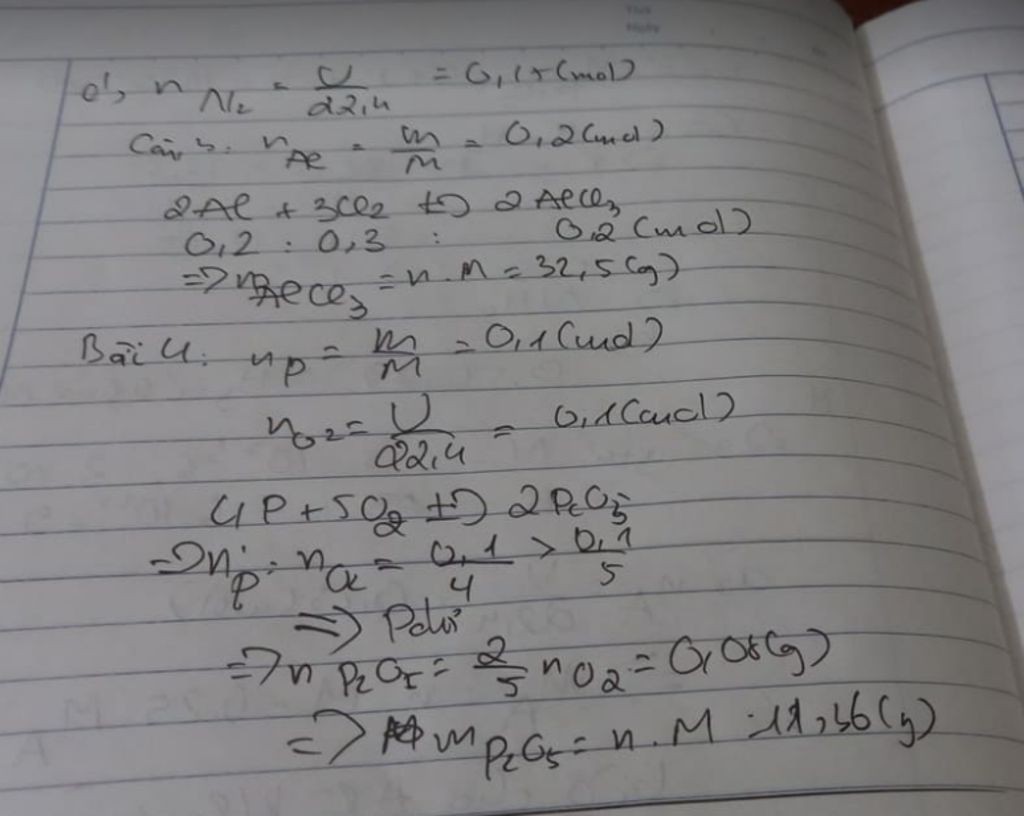 c', n N₂ = V/22,4 = 0,15 (mol)
Câu 3: nAl = m/M = 0,2 (mol)
2Al + 3Cl₂ t°→ 2AlCl₃
0,2 : 0,3 : 0,2 (mol)
=> mAlCl₃ = n.M = 32,5 (g)
Bài 4: nP = m/M = 0,1 (mol)
nO₂ = V/22,4 = 0,1 (mol)
4P + 5O₂ t°→ 2P₂O₅
=> nP : nO₂ = 0,1/4 > 0,1/5
=> P dư
=> n P₂O₅ = 2/5 nO₂ = 0,08 (g)
=> m P₂O₅ = n.M = 11,36 (g)